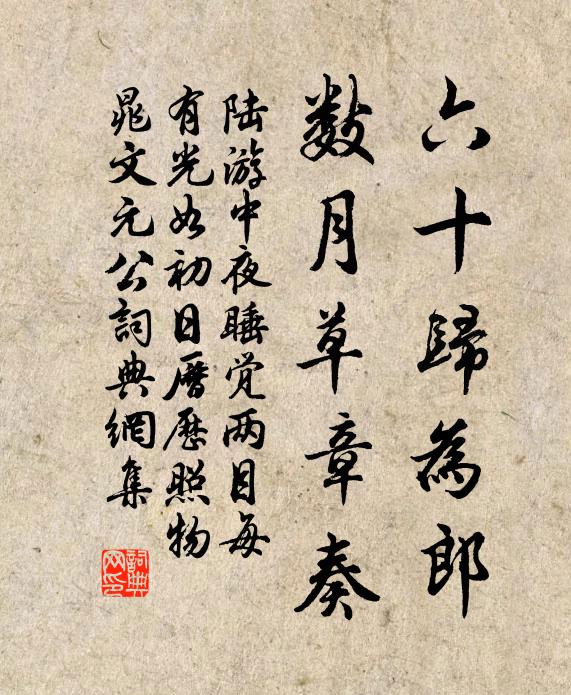 六十歸為郎
数月草章奏
陆游中夜睡觉两目每
有光如初日厝歷照物
晁文元公詞典網集
詞典
网印